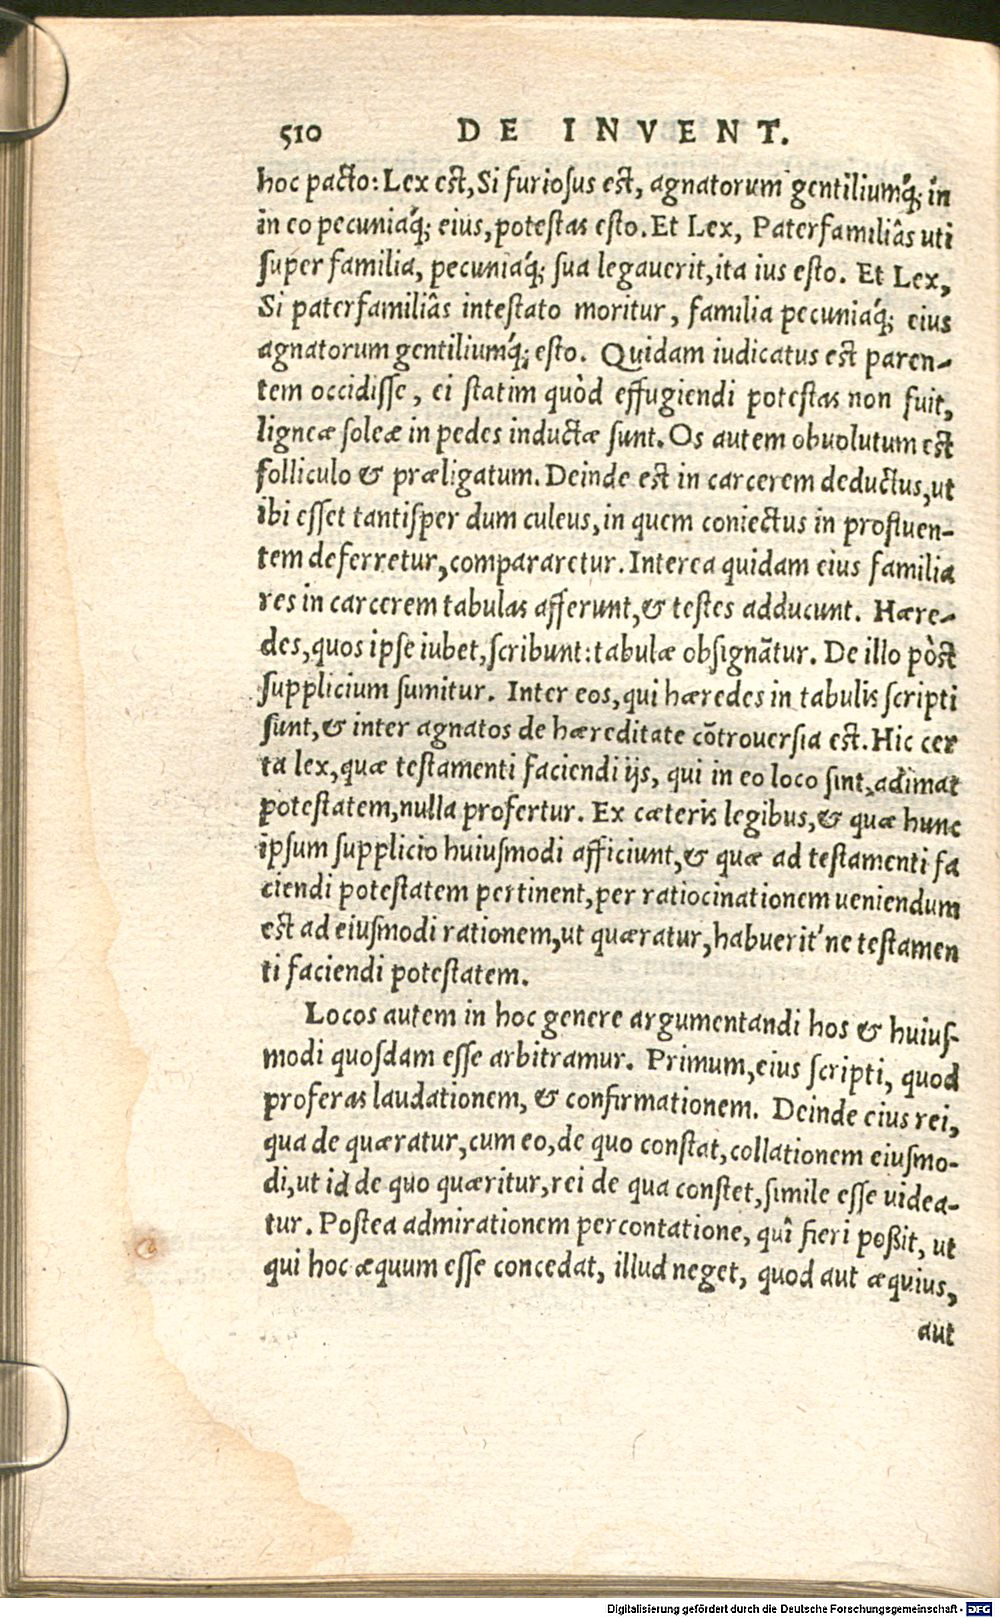 510 DE INVENT.
hoc pacto: Lex est, Si furiosus est, agnatorum gentiliumq́; in
in eo pecuniaq́; eius, potestas esto. Et Lex, Paterfamiliâs uti
super familia, pecuniaq́; sua legauerit, ita ius esto. Et Lex,
Si paterfamiliâs intestato moritur, familia pecuniaq́; eius
agnatorum gentiliumq́; esto. Quidam iudicatus est paren-
tem occidisse, ei statim quòd effugiendi potestas non fuit,
ligneæ soleæ in pedes inductæ sunt. Os autem obuolutum est
folliculo & præligatum. Deinde est in carcerem deductus, ut
ibi esset tantisper dum culeus, in quem coniectus in profluen-
tem deferretur, compararetur. Interea quidam eius familia
res in carcerem tabulas afferunt, & testes adducunt. Hære-
des, quos ipse iubet, scribunt: tabulæ obsignātur. De illo pòst
supplicium sumitur. Inter eos, qui hæredes in tabulis scripti
sunt, & inter agnatos de hæreditate cōtrouersia est. Hic cer
ta lex, quæ testamenti faciendi ijs, qui in eo loco sint, adimat
potestatem, nulla profertur. Ex cæteris legibus, & quæ hunc
ipsum supplicio huiusmodi afficiunt, & quæ ad testamenti fa
ciendi potestatem pertinent, per ratiocinationem ueniendum
est ad eiusmodi rationem, ut quæratur, habuerit'ne testamen
ti faciendi potestatem.
Locos autem in hoc genere argumentandi hos & huius-
modi quosdam esse arbitramur. Primum, eius scripti, quod
proferas laudationem, & confirmationem. Deinde eius rei,
qua de quæratur, cum eo, de quo constat, collationem eiusmo-
di, ut id de quo quæritur, rei de qua constet, simile esse uidea-
tur. Postea admirationem percontatione, quî fieri poßit, ut
qui hoc æquum esse concedat, illud neget, quod aut æquius,
aut
Digitalisierung gefördert durch die Deutsche Forschungsgemeinschaft - DFG